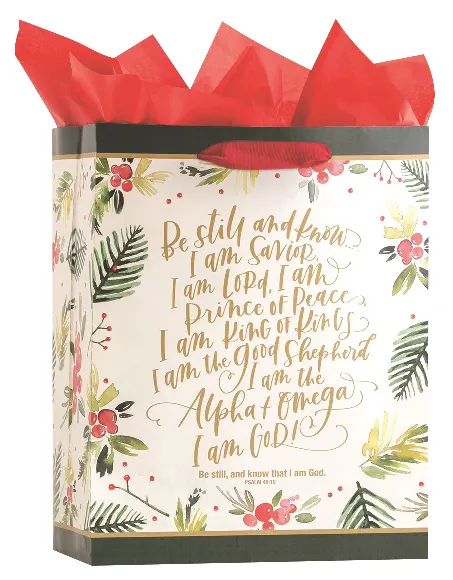 Be still and know...
I am Savior,
I am Lord, I am
Prince of Peace,
I am King of Kings
I am the Good Shepherd
I am the
Alpha + Omega
I am GOD!
Be still, and know that I am God.
PSALM 46:10